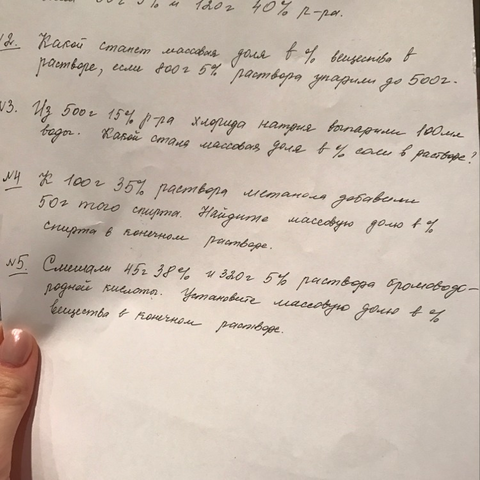 и 120г 40% р-ра.
2. Какой станет массовая доля в % вещества в
растворе, если 800г 5% раствора упарили до 500г.
№3. Из 500г 15% р-ра хлорида натрия выпарили 100мл
воды. Какой стала массовая доля в % соли в растворе?
№4 К 100г 35% раствора метанола добавили
50г того спирта. Найдите массовую долю в %
спирта в конечном растворе.
№5. Смешали 45г 38% и 320г 5% раствора бромоводо-
родной кислоты. Установите массовую долю в %
вещества в конечном растворе.